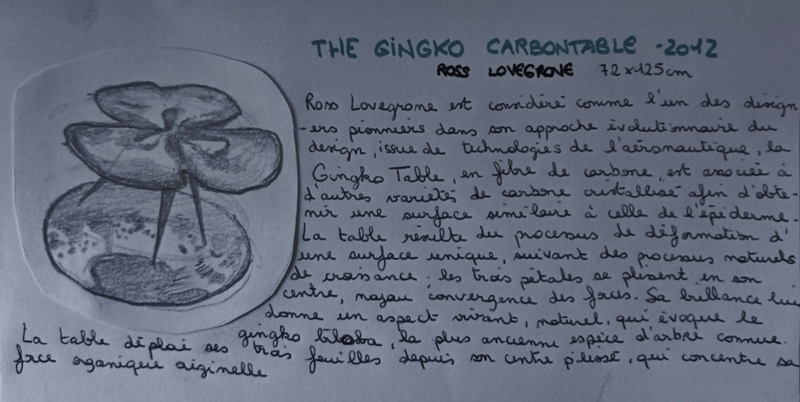 THE GINGKO CARBONTABLE - 2012
ROSS LOVEGROVE 72 x 125 cm
Ross Lovegrone est considéré comme l'un des design
-ers pionniers dans son approche évolutionnaire du
design, issue de technologies de l'aéronautique, la
Gingko Table, en fibre de carbone, est associée à
d'autres variétés de carbone cristallisé afin d'obte-
nir une surface similaire à celle de l'épiderme.
La table résulte du processus de déformation d'
une surface unique, suivant des processus naturels
de croissance; les trois pétales se plissent en son
centre, noyau convergence des forces. Sa brillance lui
donne un aspect vivant, naturel, qui évoque le
gingko biloba, la plus ancienne espèce d'arbre connue.
La table déplai ses trois feuilles depuis son centre plissé, qui concentre sa
force organique originelle